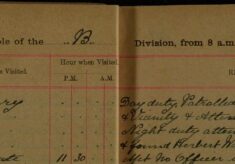 ole of the ..B.. Division, from 8 a.m
Visited.
Hour when Visited.
P.M. A.M.
ry Day duty, Patrolled
& Vicinity & Atten
Night duty atten
& found Herbert W
11 30 Met No Officer